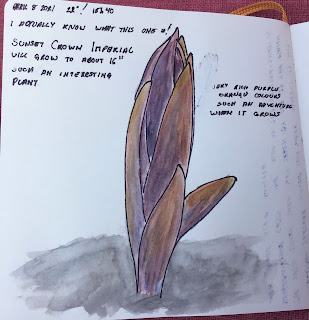 APRIL 8 2021 22°! 15h40
I ACTUALLY KNOW WHAT THIS ONE IS!
SUNSET CROWN IMPERIAL
WILL GROW TO ABOUT 16"
SUCH AN INTERESTING
PLANT
VERY RICH PURPLE
ORANGE COLOURS
SUCH AN ADVENTURE
WHEN IT GROWS